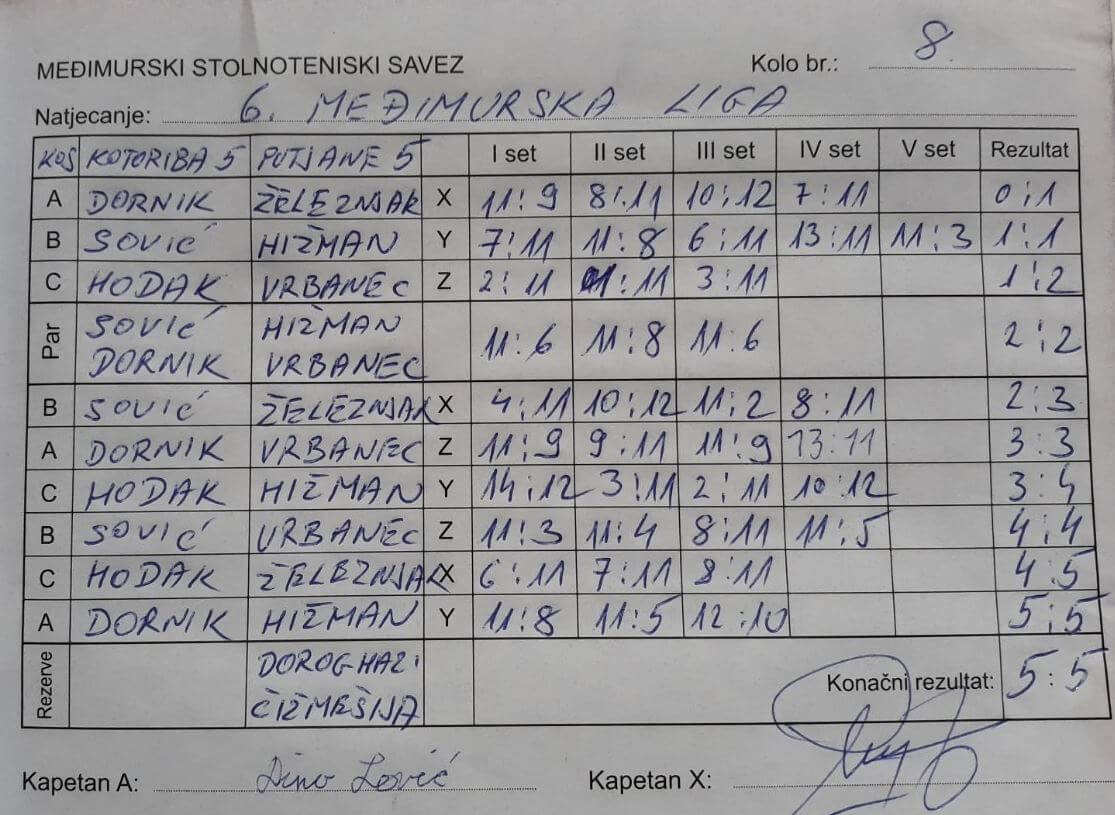 MEĐIMURSKI STOLNOTENISKI SAVEZ Kolo br.: 8.
Natjecanje: 6. MEĐIMURSKA LIGA
KOŠ KOTORIBA 5 PUTJANE 5 I set II set III set IV set V set Rezultat
A DORNIK ŽELEZNJAK X 11:9 8:11 10:12 7:11 0:1
B SOVIĆ HIŽMAN Y 7:11 11:8 6:11 13:11 11:3 1:1
C HODAK VRBANEC Z 2:11 :11 3:11 1:2
Par SOVIĆ HIŽMAN
DORNIK VRBANEC 11:6 11:8 11:6 2:2
B SOVIĆ ŽELEZNJAK X 4:11 10:12 11:2 8:11 2:3
A DORNIK VRBANEC Z 11:9 9:11 11:9 13:11 3:3
C HODAK HIŽMAN Y 14:12 3:11 2:11 10:12 3:4
B SOVIĆ VRBANEC Z 11:3 11:4 8:11 11:5 4:4
C HODAK ŽELEZNJAK X 6:11 7:11 8:11 4:5
A DORNIK HIŽMAN Y 11:8 11:5 12:10 5:5
Rezerve DOROGHAZI
ČIZMEŠIJA Konačni rezultat: 5:5
Kapetan A: Dino Kapetan X: